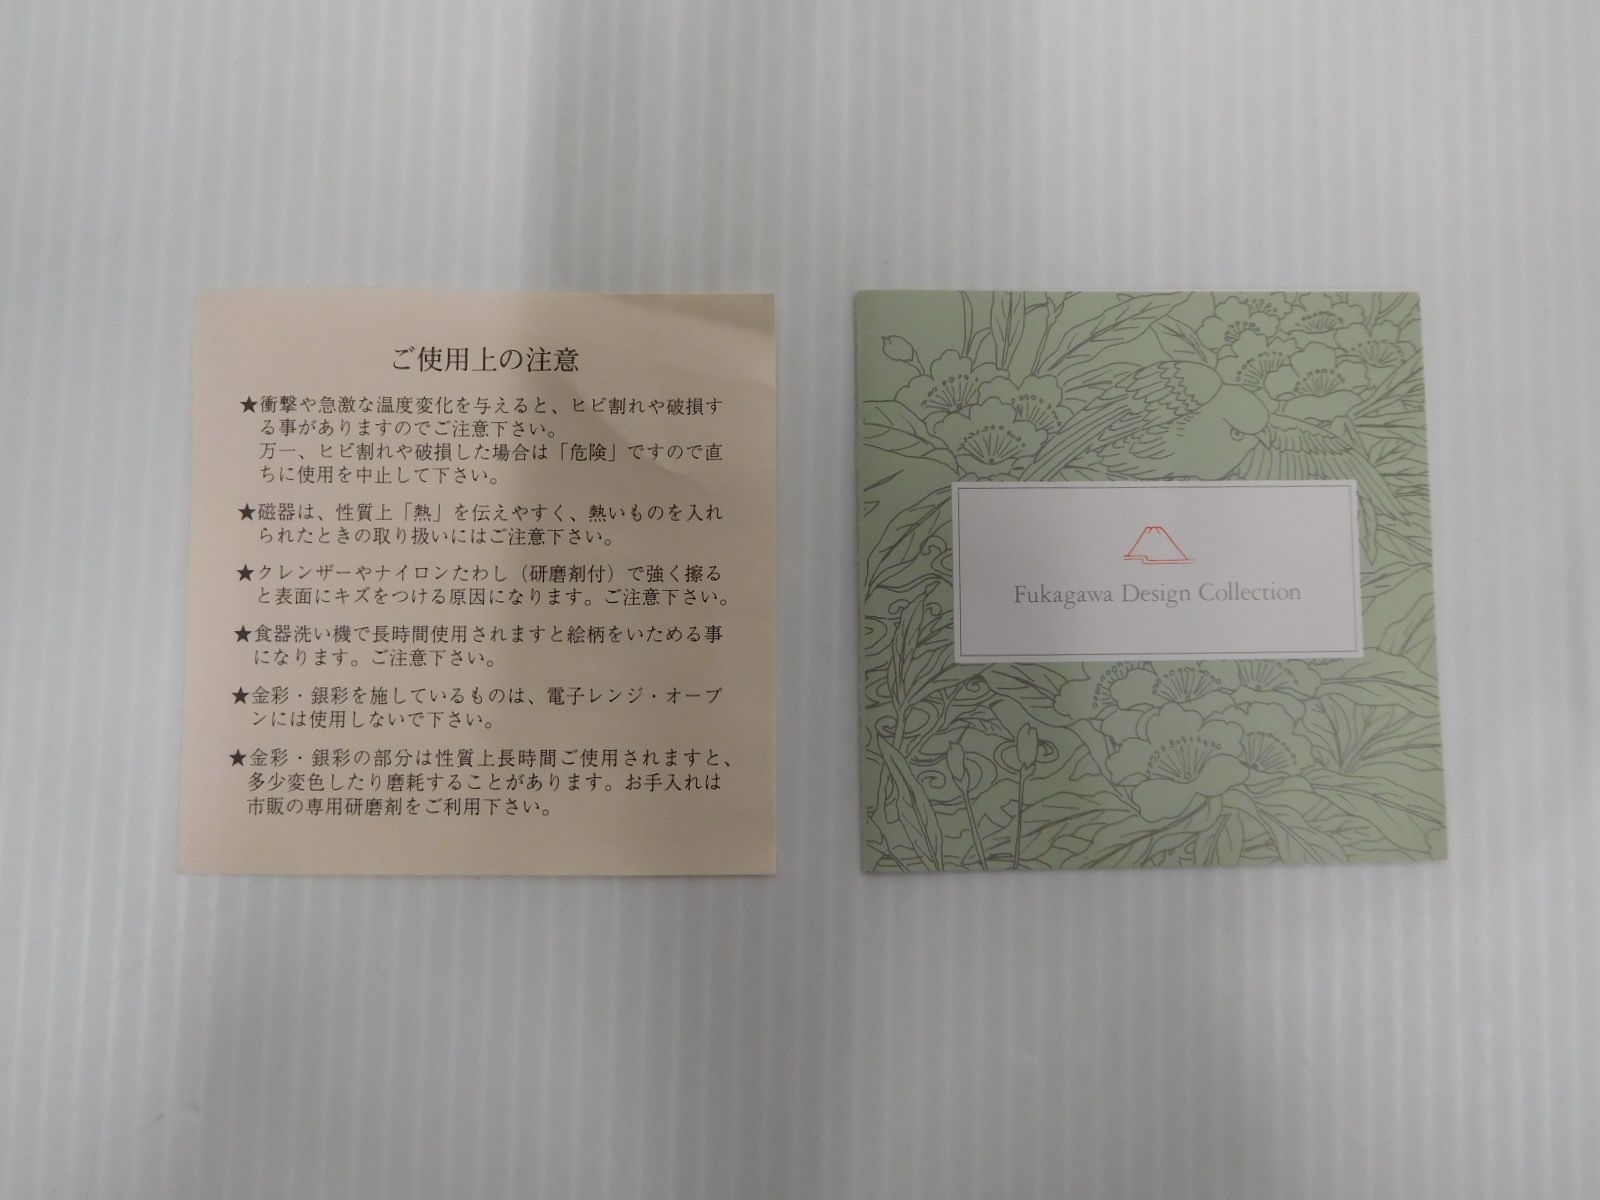 ご使用上の注意
★衝撃や急激な温度変化を与えると、ヒビ割れや破損す
る事がありますのでご注意下さい。
万一、ヒビ割れや破損した場合は「危険」ですので直
ちに使用を中止して下さい。
★磁器は、性質上「熱」を伝えやすく、熱いものを入れ
られたときの取り扱いにはご注意下さい。
★クレンザーやナイロンたわし（研磨剤付）で強く擦る
と表面にキズをつける原因になります。ご注意下さい。
★食器洗い機で長時間使用されますと絵柄をいためる事
になります。ご注意下さい。
★金彩・銀彩を施しているものは、電子レンジ・オーブ
ンには使用しないで下さい。
★金彩・銀彩の部分は性質上長時間ご使用されますと、
多少変色したり磨耗することがあります。お手入れは
市販の専用研磨剤をご利用下さい。
Fukagawa Design Collection